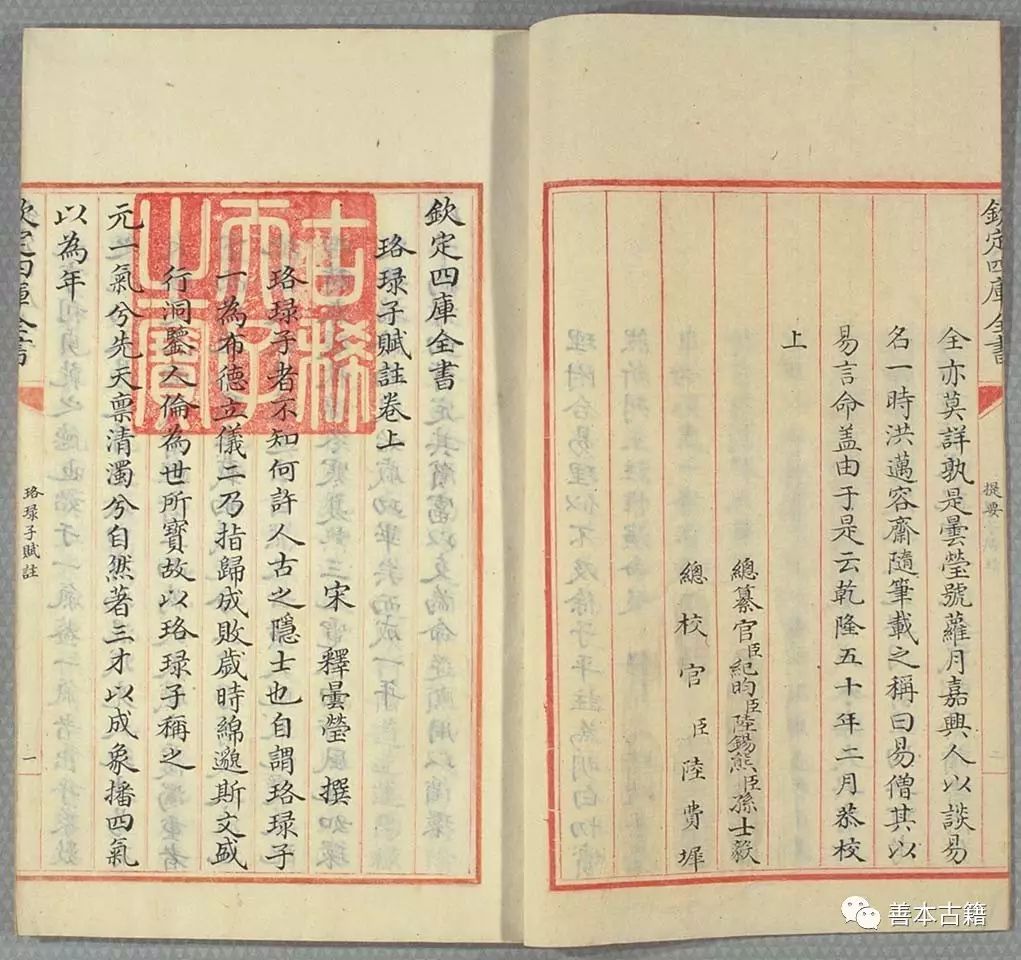 欽定四庫全書
提要
全亦莫詳孰是曇瑩號蘿月嘉興人以談易
名一時洪邁容齋隨筆載之稱曰易僧其以
易言命盖由于是云乾隆五十年二月恭校
上
總纂官臣紀昀臣陸錫熊臣孫士毅
總校官臣陸費墀
欽定四庫全書
珞琭子賦註卷上
宋 釋曇瑩 撰
珞琭子者不知何許人古之隱士也自謂珞琭子
一為布德立儀二乃指歸成敗歲時綿邈斯文盛
行洞鑒人倫為世所寶故以珞琭子稱之
元一氣兮先天禀清濁兮自然著三才以成象播四氣
以為年
古稀天子之寶
欽定四庫全書
珞琭子賦註
一
善本古籍